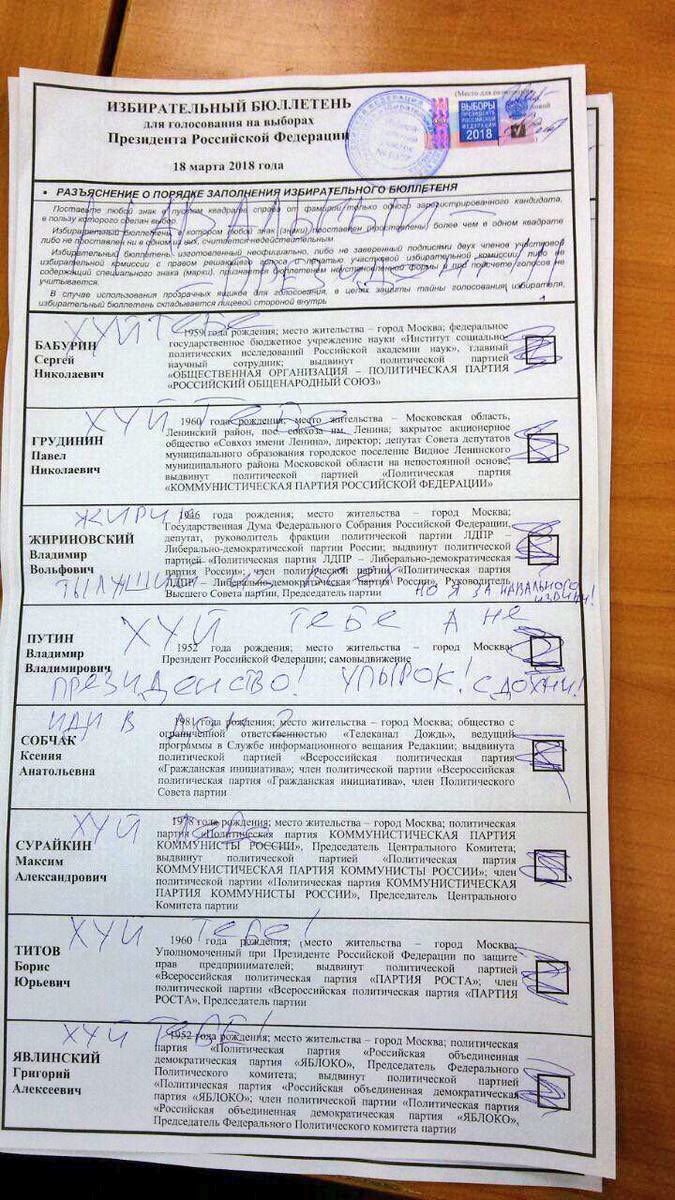 ИЗБИРАТЕЛЬНЫЙ БЮЛЛЕТЕНЬ
для голосования на выборах
Президента Российской Федерации
18 марта 2018 года
ВЫБОРЫ
ПРЕЗИДЕНТА
РОССИЙСКОЙ
ФЕДЕРАЦИИ
2018
• РАЗЪЯСНЕНИЕ О ПОРЯДКЕ ЗАПОЛНЕНИЯ ИЗБИРАТЕЛЬНОГО БЮЛЛЕТЕНЯ
Поставьте любой знак в пустом квадрате справа от фамилии только одного зарегистрированного кандидата,
в пользу которого сделан выбор.
Избирательный бюллетень, в котором любой знак (знаки) проставлен (проставлены) более чем в одном квадрате
либо не проставлен ни в одном из них, считается недействительным.
Избирательный бюллетень, изготовленный неофициально, либо не заверенный подписями двух членов участковой
избирательной комиссии с правом решающего голоса и печатью участковой избирательной комиссии, либо не
содержащий специального знака (марки), признается бюллетенем неустановленной формы и при подсчете голосов не
учитывается.
В случае использования прозрачных ящиков для голосования, в целях защиты тайны голосования избирателя,
избирательный бюллетень складывается лицевой стороной внутрь
НАВАЛЬНЫЙ –
ХУЙ ТЕБЕ
БАБУРИН
Сергей
Николаевич
1959 года рождения; место жительства – город Москва; федеральное
государственное бюджетное учреждение науки «Институт социально-
политических исследований Российской академии наук», главный
научный сотрудник; выдвинут политической партией
«ОБЩЕСТВЕННАЯ ОРГАНИЗАЦИЯ – ПОЛИТИЧЕСКАЯ ПАРТИЯ
«РОССИЙСКИЙ ОБЩЕНАРОДНЫЙ СОЮЗ»
ХУЙ ТЕБЕ
ГРУДИНИН
Павел
Николаевич
1960 года рождения; место жительства – Московская область,
Ленинский район, пос. совхоза им. Ленина; закрытое акционерное
общество «Совхоз имени Ленина», директор; депутат Совета депутатов
муниципального образования городское поселение Видное Ленинского
муниципального района Московской области на непостоянной основе;
выдвинут политической партией «Политическая партия
«КОММУНИСТИЧЕСКАЯ ПАРТИЯ РОССИЙСКОЙ ФЕДЕРАЦИИ»
ЖИРИК
ЖИРИНОВСКИЙ
Владимир
Вольфович
1946 года рождения; место жительства – город Москва;
Государственная Дума Федерального Собрания Российской Федерации,
депутат, руководитель фракции политической партии ЛДПР –
Либерально-демократической партии России; выдвинут политической
партией «Политическая партия ЛДПР – Либерально-демократическая
партия России»; член политической партии «Политическая партия
ЛДПР – Либерально-демократическая партия России», Руководитель
Высшего Совета партии, Председатель партии
ТЫ ЛУЧШИЙ ИЗ ВСЕХ НО Я ЗА НАВАЛЬНОГО
ИЗВИНИ!
ХУЙ ТЕБЕ А НЕ
ПУТИН
Владимир
Владимирович
1952 года рождения; место жительства – город Москва;
Президент Российской Федерации; самовыдвижение
ПРЕЗИДЕНСТВО! УПЫРОК! СДОХНИ!
ИДИ В
СОБЧАК
Ксения
Анатольевна
1981 года рождения; место жительства – город Москва; общество с
ограниченной ответственностью «Телеканал Дождь», ведущий
программы в Службе информационного вещания Редакции; выдвинута
политической партией «Всероссийская политическая партия
«Гражданская инициатива»; член политической партии «Всероссийская
политическая партия «Гражданская инициатива», член Политического
Совета партии
ХУЙ ТЕБЕ
СУРАЙКИН
Максим
Александрович
1978 года рождения; место жительства – город Москва; политическая
партия «Политическая партия КОММУНИСТИЧЕСКАЯ ПАРТИЯ
КОММУНИСТЫ РОССИИ», Председатель Центрального Комитета;
выдвинут политической партией «Политическая партия
КОММУНИСТИЧЕСКАЯ ПАРТИЯ КОММУНИСТЫ РОССИИ»; член
политической партии «Политическая партия КОММУНИСТИЧЕСКАЯ
ПАРТИЯ КОММУНИСТЫ РОССИИ», Председатель Центрального
Комитета партии
ХУЙ ТЕБЕ!
ТИТОВ
Борис
Юрьевич
1960 года рождения; место жительства – город Москва;
Уполномоченный при Президенте Российской Федерации по защите
прав предпринимателей; выдвинут политической партией
«Всероссийская политическая партия «ПАРТИЯ РОСТА»; член
политической партии «Всероссийская политическая партия «ПАРТИЯ
РОСТА», Председатель партии
ХУЙ ТЕБЕ!
ЯВЛИНСКИЙ
Григорий
Алексеевич
1952 года рождения; место жительства – город Москва; политическая
партия «Политическая партия «Российская объединенная
демократическая партия «ЯБЛОКО», Председатель Федерального
Политического комитета; выдвинут политической партией
«Политическая партия «Российская объединенная демократическая
партия «ЯБЛОКО»; член политической партии «Политическая партия
«Российская объединенная демократическая партия «ЯБЛОКО»,
Председатель Федерального Политического комитета партии